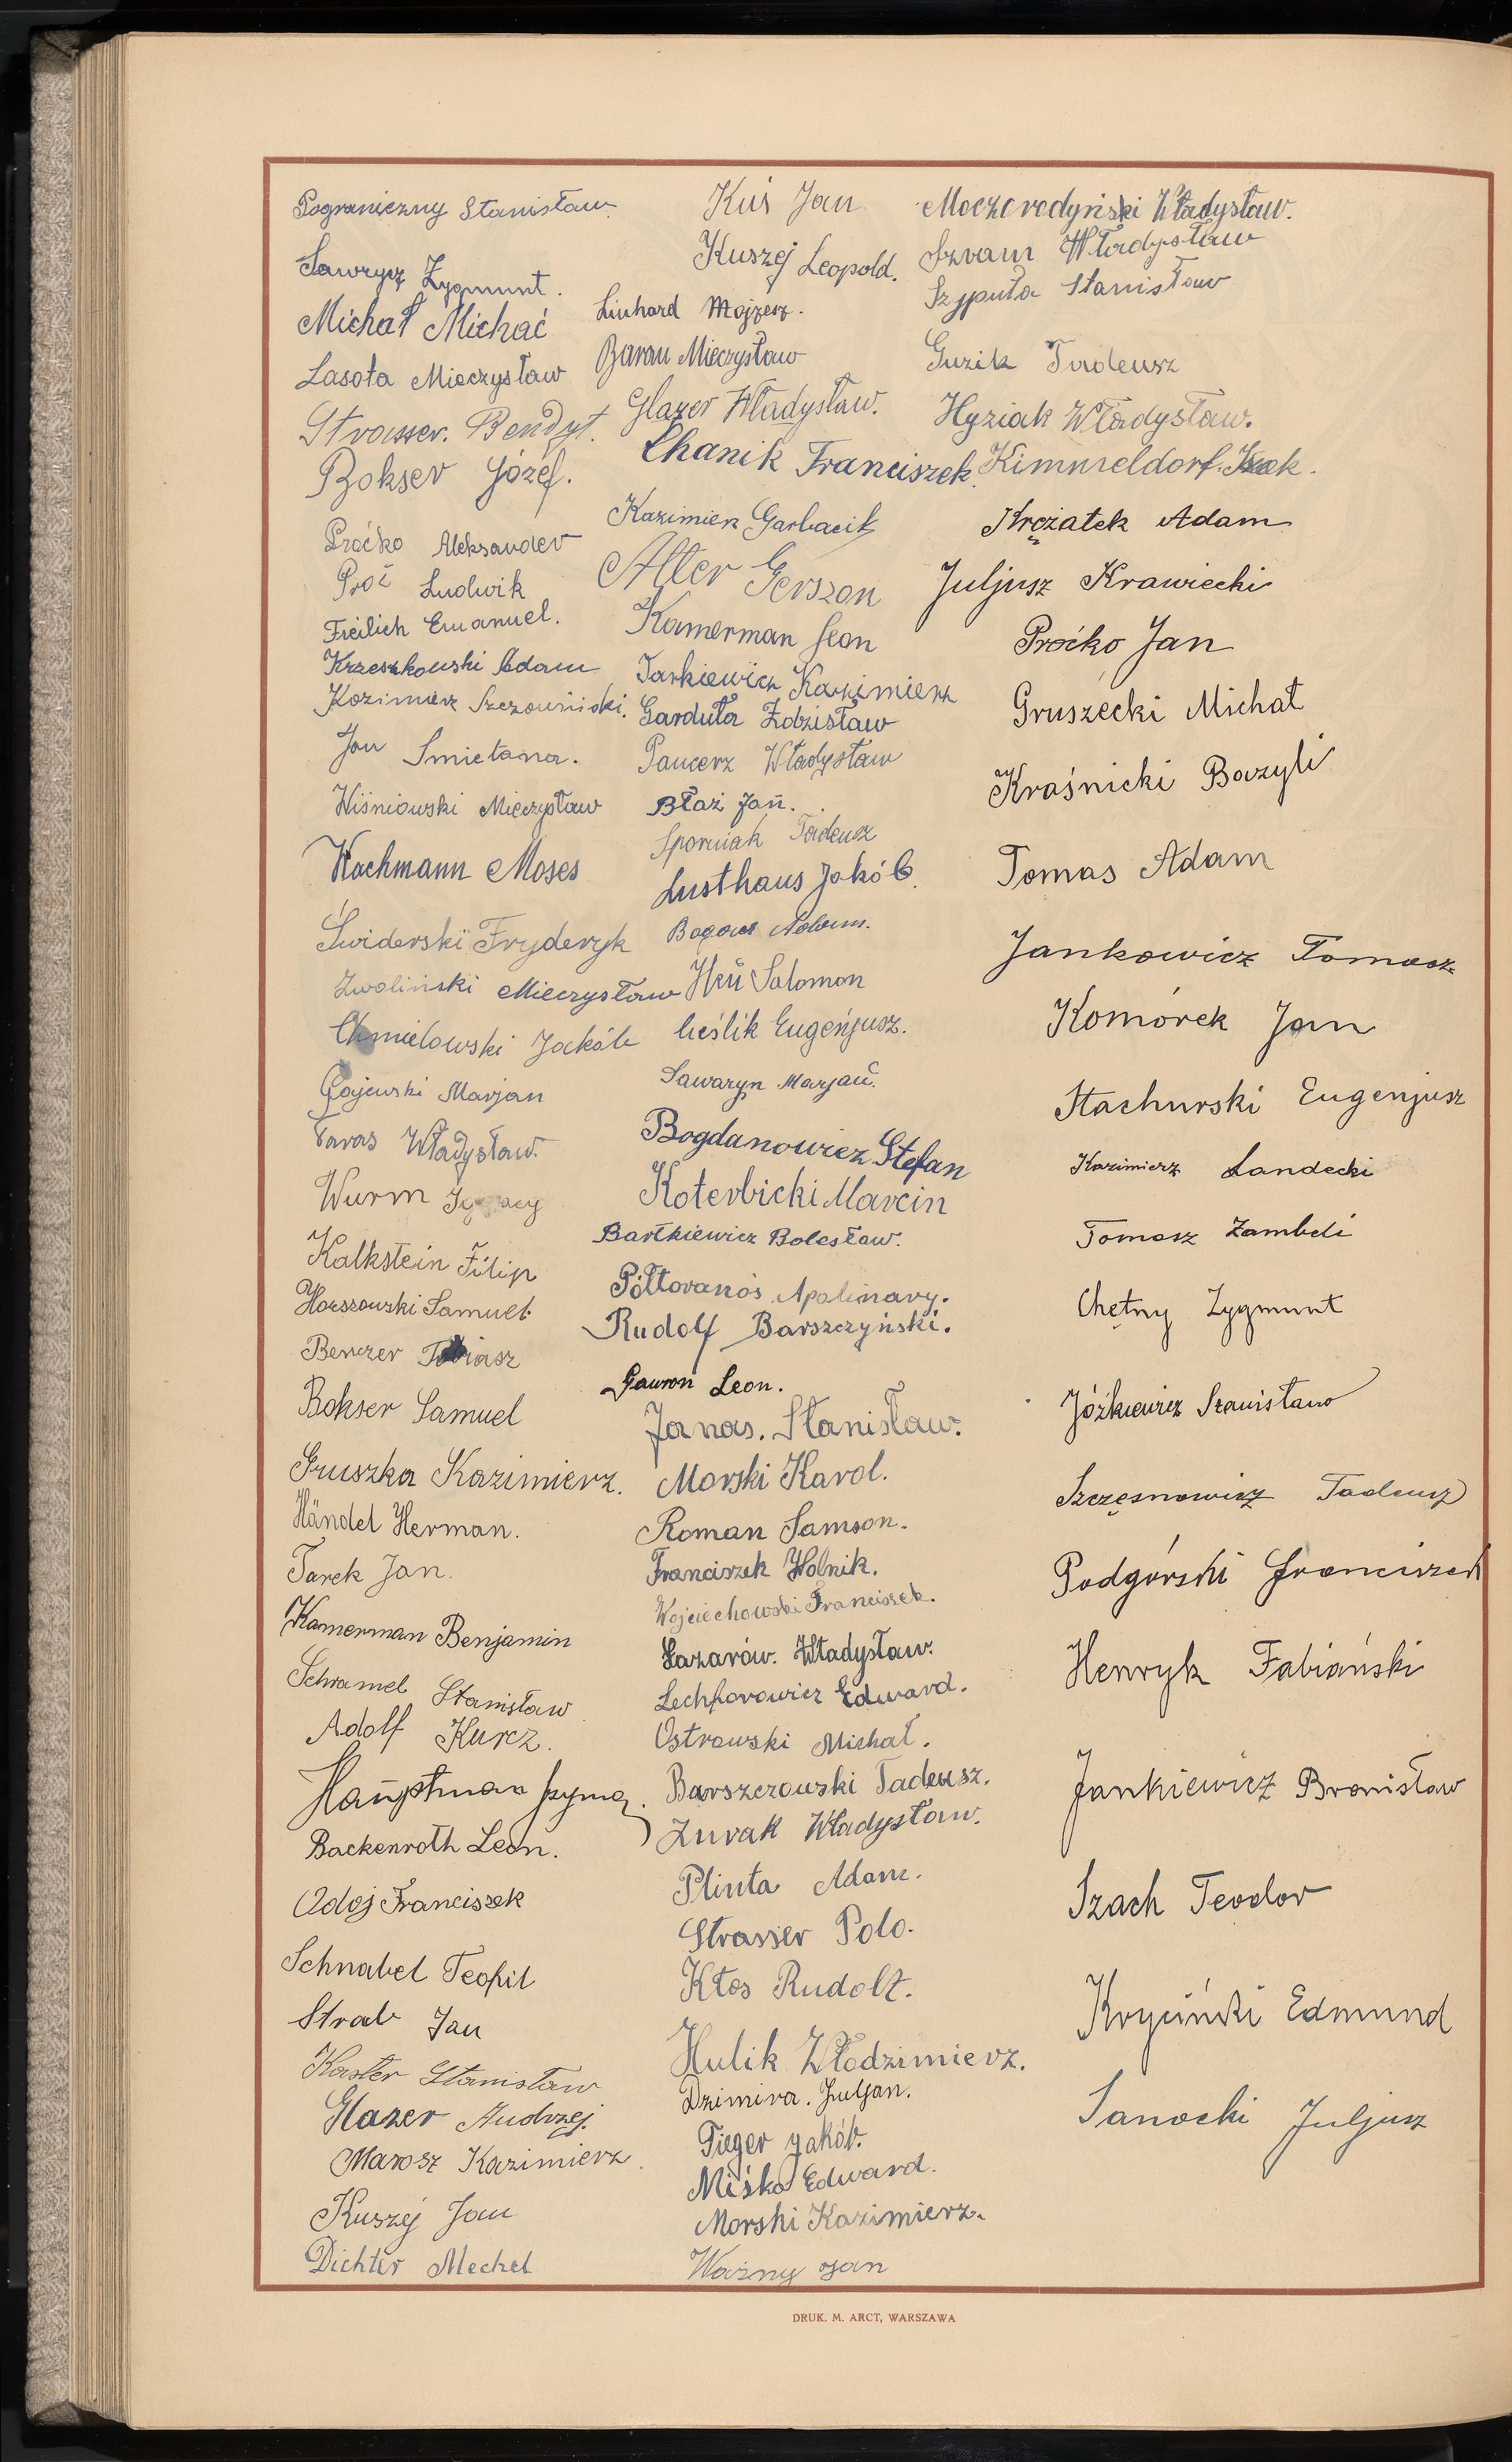 Pograniczny Stanisław
Sawrycz Zygmunt.
Michał Michać
Lasota Mieczysław
Strasser. Bendyt.
Bokser Józef.
Proćko Aleksander
Proć Ludwik
Freilich Emanuel.
Krzeszkowski Adam
Kozimierz
Jan Smietana.
Wiśniowski Mieczysław
Wachmann Moses
Świderski Fryderyk
Zwoliński Mieczysław
Chmielowski Jakób
Gajewski Marjan
Taras Władysław.
Wurm
Kalkstein Filip
Horszowski Samuel
Benczer Tobiasz
Bokser Samuel
Gruszka Kazimierz.
Händel Herman.
Tarek Jan.
Kamerman Benjamin
Schramel Stanisław
Adolf Kurcz.
Hauptman
Backenroth Leon.
Odoj Franciszek
Schnabel Teofil
Strab Jan
Koster Stanisław
Glazer Andrzej.
Marosz Kazimierz.
Kuszej Jan
Dichter Mechel
Kuś Jan
Kuszej Leopold.
Linhard Mojżesz.
Baran Mieczysław
Glazer Władysław.
Chanik Franciszek.
Kazimierz Garbacik
Alter Gerszon
Kamerman Leon
Jarkiewicz Kazimierz
Garduła Zdzisław
Pancerz Władysław
Błaż Jan.
Sporniak Tadeusz
Lusthaus Jakób.
Bogacz Adam.
Salomon
Cieślik Eugenjusz.
Sawaryn Marjan.
Bogdanowicz Stefan
Koterbicki Marcin
Bartkiewicz Bolesław.
Półtoranos Apolinary.
Rudolf Barszczyński.
Gawron Leon.
Janas. Stanisław.
Morski Karol.
Roman Samson.
Franciszek Wolnik.
Wojciechowski Franciszek.
Łazarów. Władysław.
Lechforowicz Edward.
Ostrowski Michał.
Barszczowski Tadeusz.
Żurak Władysław.
Plinta Adam.
Strasser Polo.
Kłos Rudolf.
Hulik Włodzimierz.
Dzimira. Juljan.
Tieger Jakób.
Miśko Edward.
Morski Kazimierz.
Ważny Jan
Moczorodyński Władysław.
Szwam Władysław
Szyputa Stanisław
Guzik Tadeusz
Hyziak Władysław.
Kimmeldorf. Izak.
Krężałek Adam
Juljusz Krawiecki
Proćko Jan
Gruszecki Michał
Kraśnicki Bazyli
Tomas Adam
Jankowicz Tomasz
Komórek Jan
Stachurski Eugenjusz
Kazimierz Landecki
Tomasz Zambeli
Chętny Zygmunt
Jóźkiewicz Stanisław
Szczęsnowicz Tadeusz
Podgórski Franciszek
Henryk Fabiański
Jankiewicz Bronisław
Szach Teodor
Kryciński Edmund
Sanocki Juljusz
DRUK. M. ARCT, WARSZAWA